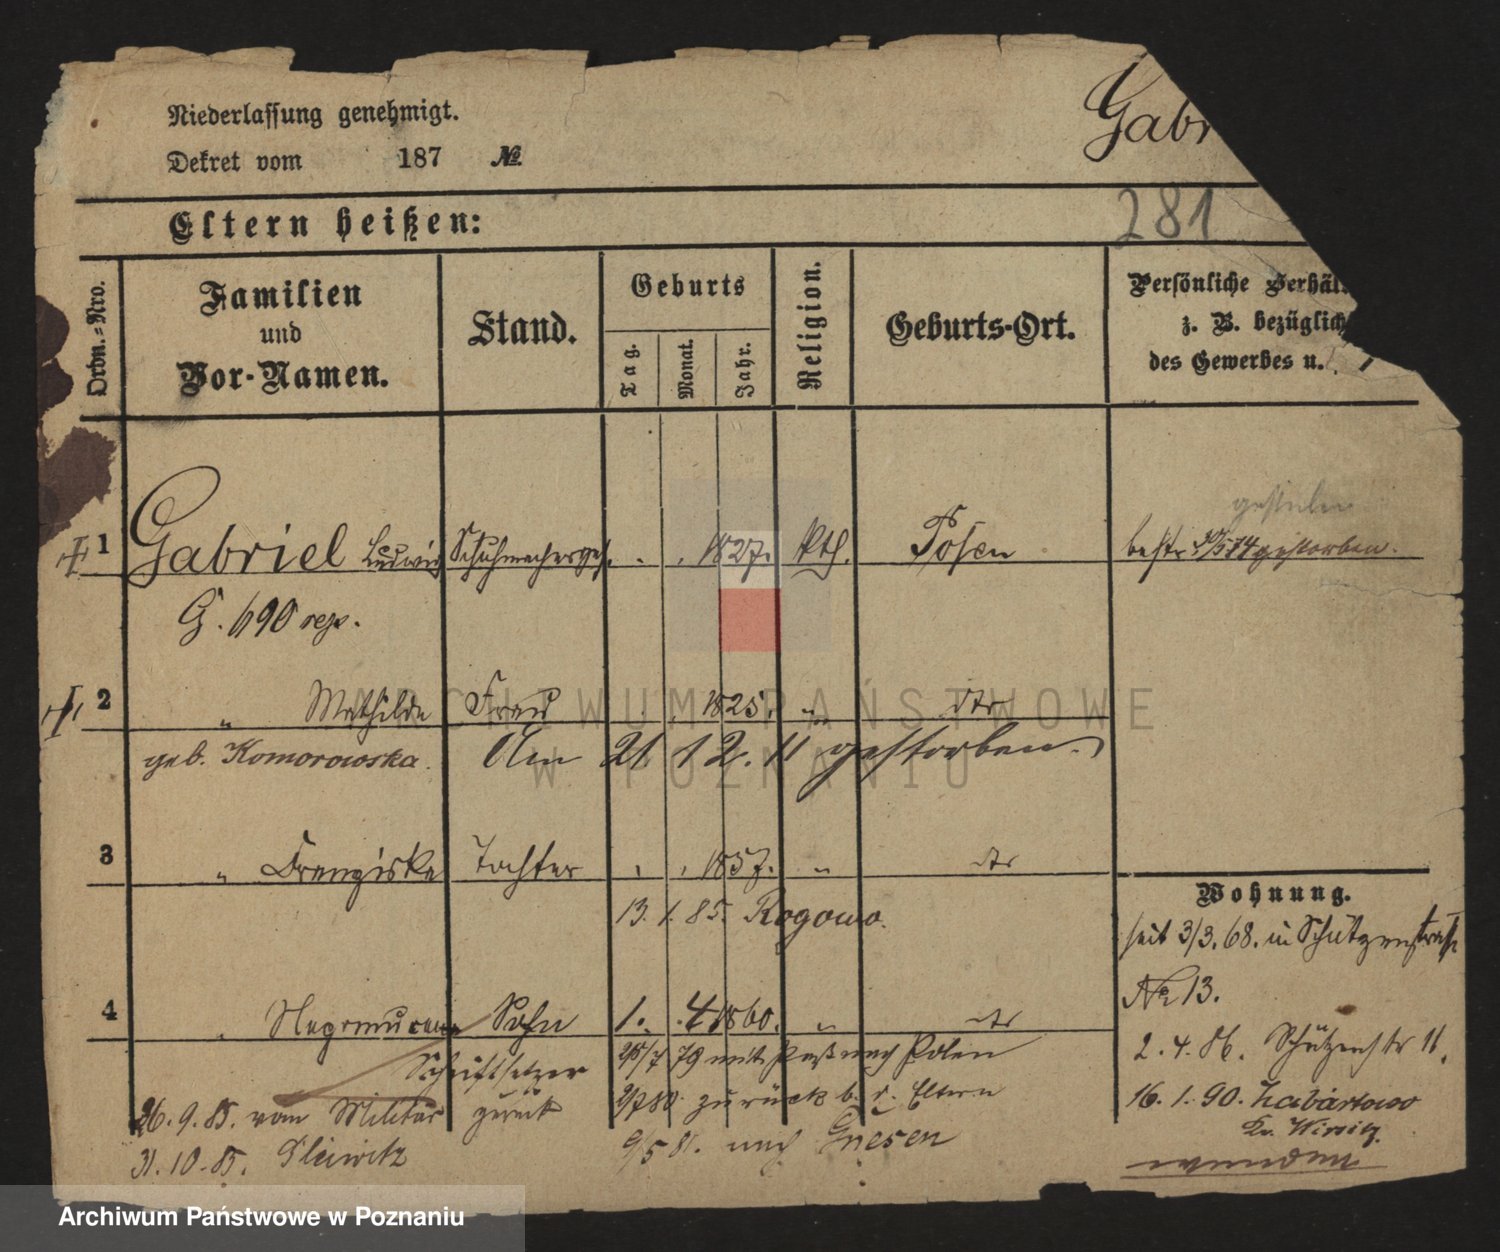 Niederlassung genehmigt.
Gabr
Dekret vom 187 №
Eltern heißen:
281
Ordn.-Nro.
Familien
und
Vor-Namen.
Stand.
Geburts
Tag.
Monat.
Jahr.
Religion.
Geburts-Ort.
Persönliche Verhäl
z. B. bezüglich
des Gewerbes u.
1 Gabriel Ludwig Schuhmacherges. 1827. kth. Posen gestorben.
G. 690 rep.
2 " Mathilde Frau 1825. " dto
geb. Komorowska. Am 21 12. 11 gestorben.
3 " Franziska Tochter 1857. " dto
13. 1. 85. Rogowo.
Wohnung.
seit 3/3. 68. in Schützenstraße
№ 13.
4 " Sohn 1. 4 1860. " dto
Schriftsetzer 79 mit Paß nach Polen
2. 4. 86. Schützenstr 11.
26. 9. 85. vom Militär zurück zurück b. d. Eltern
16. 1. 90. Kr. Wirsitz.
9/5 81. nach Gnesen
31. 10. 85. Gleiwitz
ARCHIWUM PAŃSTWOWE
W POZNANIU
Archiwum Państwowe w Poznaniu